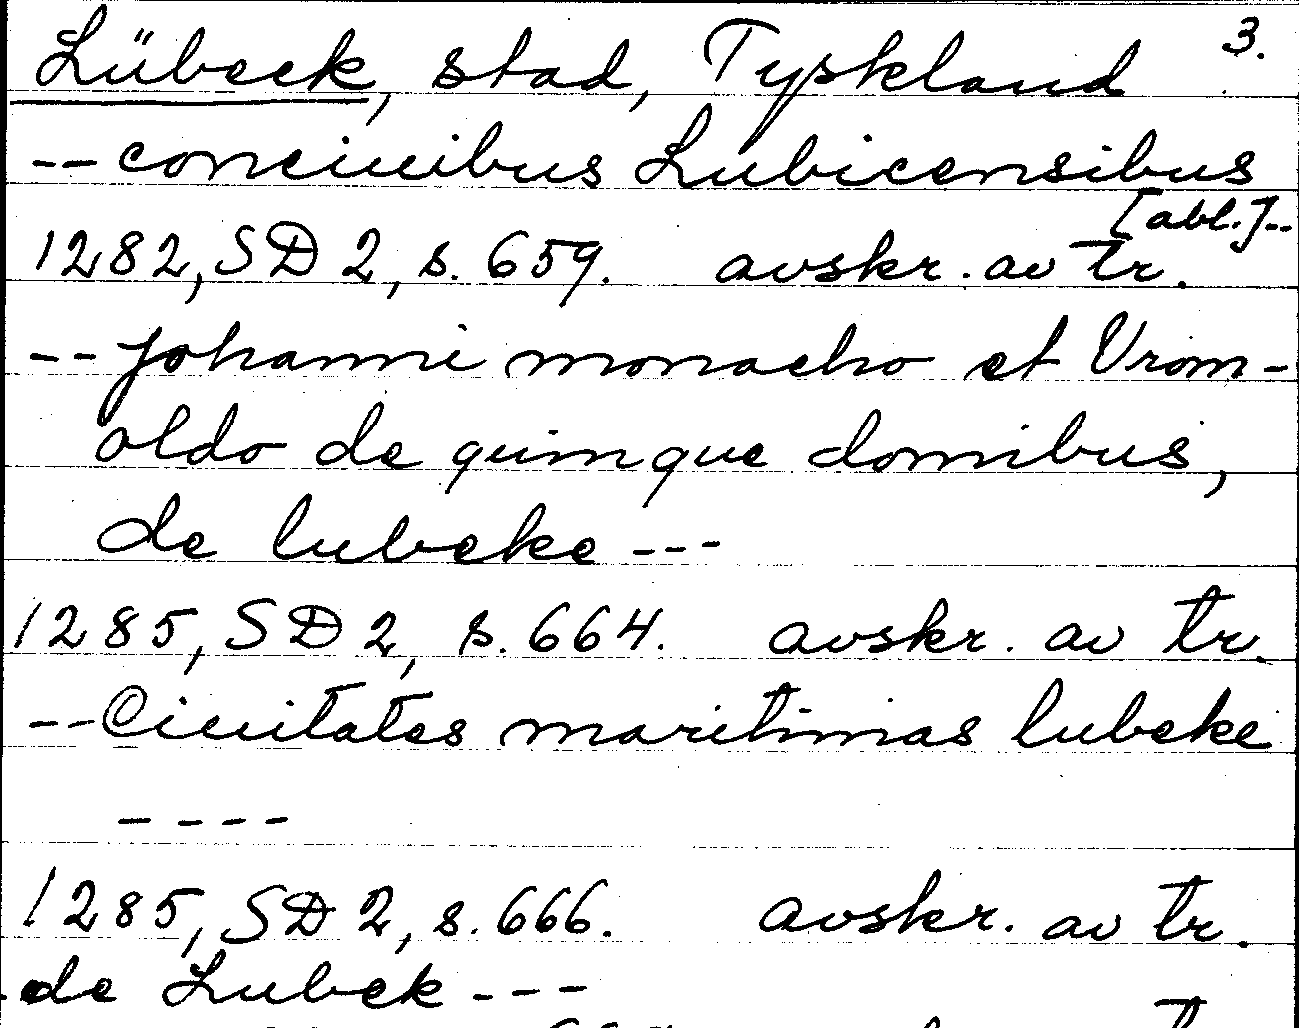 Lübeck, stad, Tyskland 3.
-- conciuibus Lubicensibus
[abl.]--
1282, SD 2, s. 659. avskr. av tr.
-- Johanni monacho et Vrom-
oldo de quinque domibus,
de lubeke ---
1285, SD 2, s. 664. avskr. av tr.
-- Ciuitates maritimas lubeke
----
1285, SD 2, s. 666. avskr. av tr.
de Lubek ---